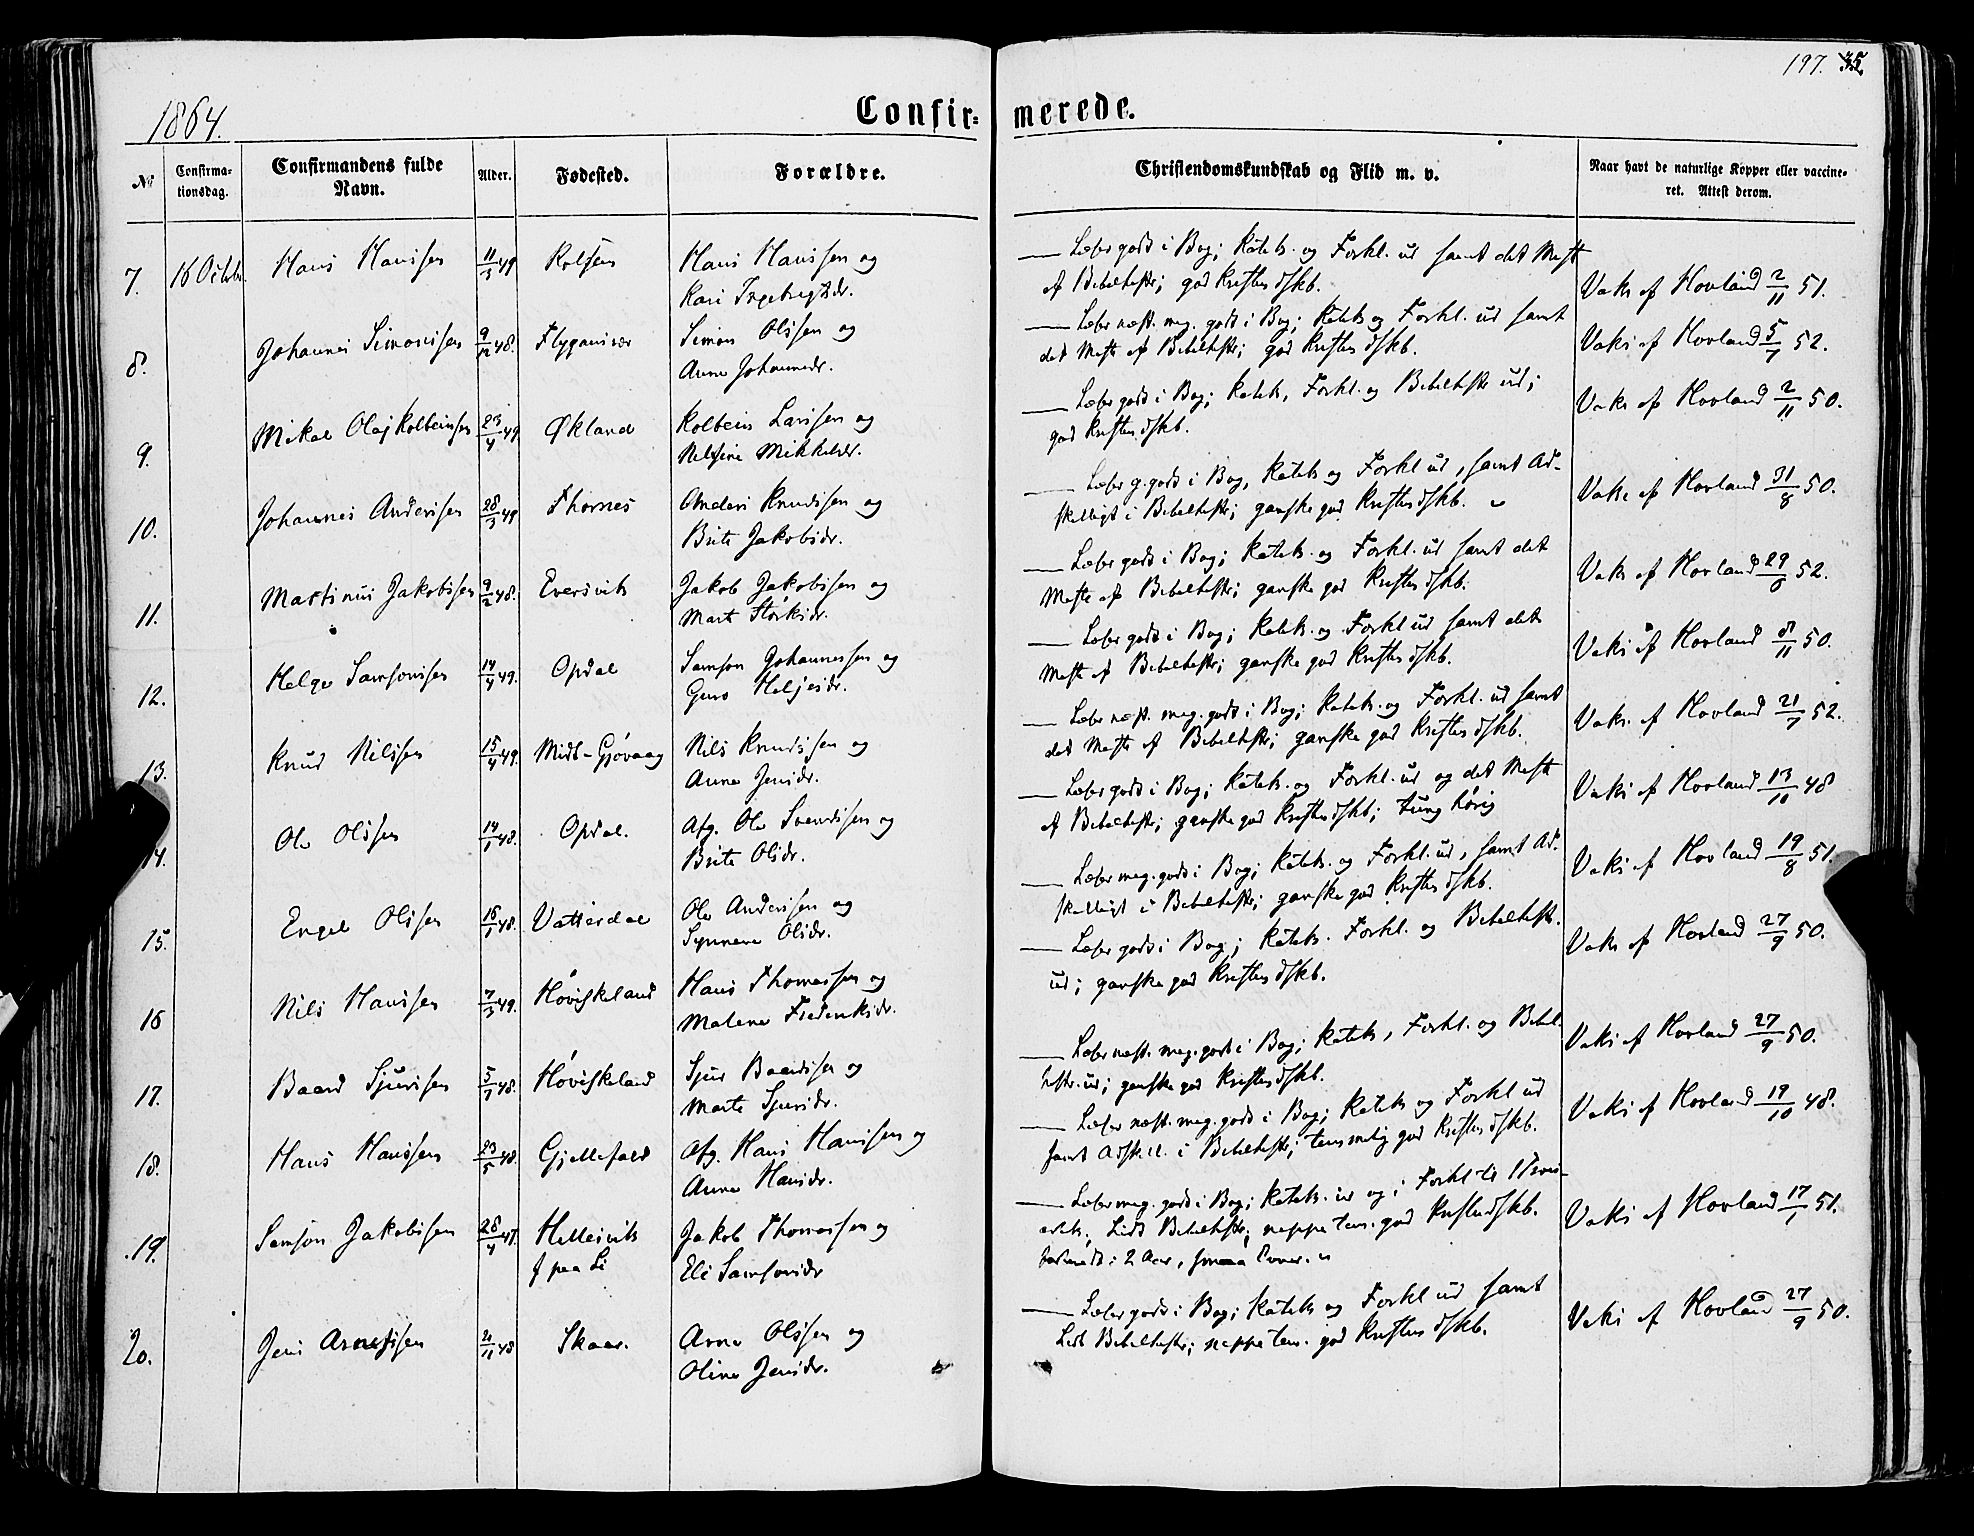 197.
1864.
Confir= merede.
№
Confirma-
tionsdag.
Confirmandens fulde
Navn.
Alder.
Fødested.
Forældre.
Christendomskundskab og Flid m. v.
Naar havt de naturlige Kopper eller vaccine-
ret. Attest derom.
7. 16 Octobr. Hans Hanssen 11/3 49 Rolfsen Hans Hanssen og
Kari Ingebrigtsdr.
— Læser godt i Bog; Katek. og Forkl. ud samt det Meste
af Bibelhistr; god Kristendskb.
Vaks af Hovland 2/11 51.
8. Johannes Simonssen 9/12 48. Flygansvær Simon Olssen og
Anna Johannesdr.
— Læser næst. meg. godt i Bog; Katek og Forkl. ud samt
det Meste af Bibelhistr; god Kristendskb.
Vaks af Hovland 5/7 52.
9. Mikal Olaj Kolbeinssen 23/4 49 Økland Kolbein Larssen og
Nilsine Mikkelsdr.
— Læser godt i Bog; Katek, Forkl. og Bibelhistr ud;
god Kristendskb.
Vaks af Hovland 2/11 50.
10. Johannes Anderssen 28/3 49 Thornes Anders Knudssen og
Brite Jakobsdr.
— Læser g. godt i Bog, Katek og Forkl ud, samt Ad-
skilligt i Bibelhistr; ganske god Kristendskb.
Vaks af Hovland 31/8 50.
11. Martinus Jakobssen 9/2 48. Eversvik Jakob Jakobssen og
Marte Størksdr.
— Læser godt i Bog; Katek. og Forkl. ud samt det
Meste af Bibelhistr; ganske god Kristendskb.
Vaks af Hovland 29/6 52.
12. Helge Samsonssen 14/4 49. Opdal Samson Johannessen og
Guro Heljesdr.
— Læser godt i Bog; Katek. og Forkl ud samt det
Meste af Bibelhistr; ganske god Kristendskb.
Vaks af Hovland 8/11 50.
13. Knud Nilssen 15/4 49. Midt-Gjøvaag Nils Knudssen og
Anna Jensdr.
— Læser næst. meg. godt i Bog; Katek. og Forkl. ud samt
det Meste af Bibelhistr; ganske god Kristendskb.
Vaks. af Hovland 21/7 52.
14. Ole Olssen 14/1 48. Opdal. Afg. Ole Svendssen og
Brite Olsdr.
— Læser godt i Bog; Katek. og Forkl. ud og det Meste
af Bibelhistr; ganske god Kristendskb; tung hørig
Vaks af Hovland 13/10 48
15. Engel Olssen 16/1 48. Vatterdal Ole Anderssen og
Synneva Olsdr.
— Læser meg. godt i Bog; Katek. og Forkl. ud, samt Ad-
skilligt i Bibelhistr; ganske god Kristendskb.
Vaks af Hovland 19/8 51.
16 Nils Hanssen 7/3 49. Høviskeland Hans Thomassen og
Malene Frederiksdr.
— Læser godt i Bog; Katek. Forkl. og Bibelhistr.
ud; ganske god Kristendskb.
Vaks af Hovland 27/9 50.
17. Baard Sjurssen 5/1 48. Høviskeland Sjur Baardssen og
Marte Sjursdr.
— Læser næst. meg. godt i Bog; Katek, Forkl. og Bibel-
histr. ud; ganske god Kristendskb.
Vaks af Hovland 27/9 50.
18. Hans Hanssen 23/5 48. Gjellefald Afg. Hans Hanssen og
Anna Hansdr.
— Læser næst. meg. godt i Bog; Katek og Forkl ud
samt Adskill. i Bibelhistr; temmelig god Kristendskb.
Vaks af Hovland 19/10 48.
19. Samson Jakobssen 28/4 47. Hellesvik Jakob Thomassen og
f paa Li Eli Samsonsdr
— Læser meg. godt i Bog; Katek. ud og i Forkl til
Lidt Bibelhistr; neppe tem. god Kristendskb.
i 2 Aar, smaa Evner.
Vaks af Hovland 17/1 51.
20. Jens Arnessen 2/11 48 Skaar. Arne Olssen og
Oline Jensdr.
— Læser godt i Bog; Katek og Forkl ud samt
Lidt Bibelhistr; neppe tem. god Kristendskb.
Vaks af Hovland 27/9 50.